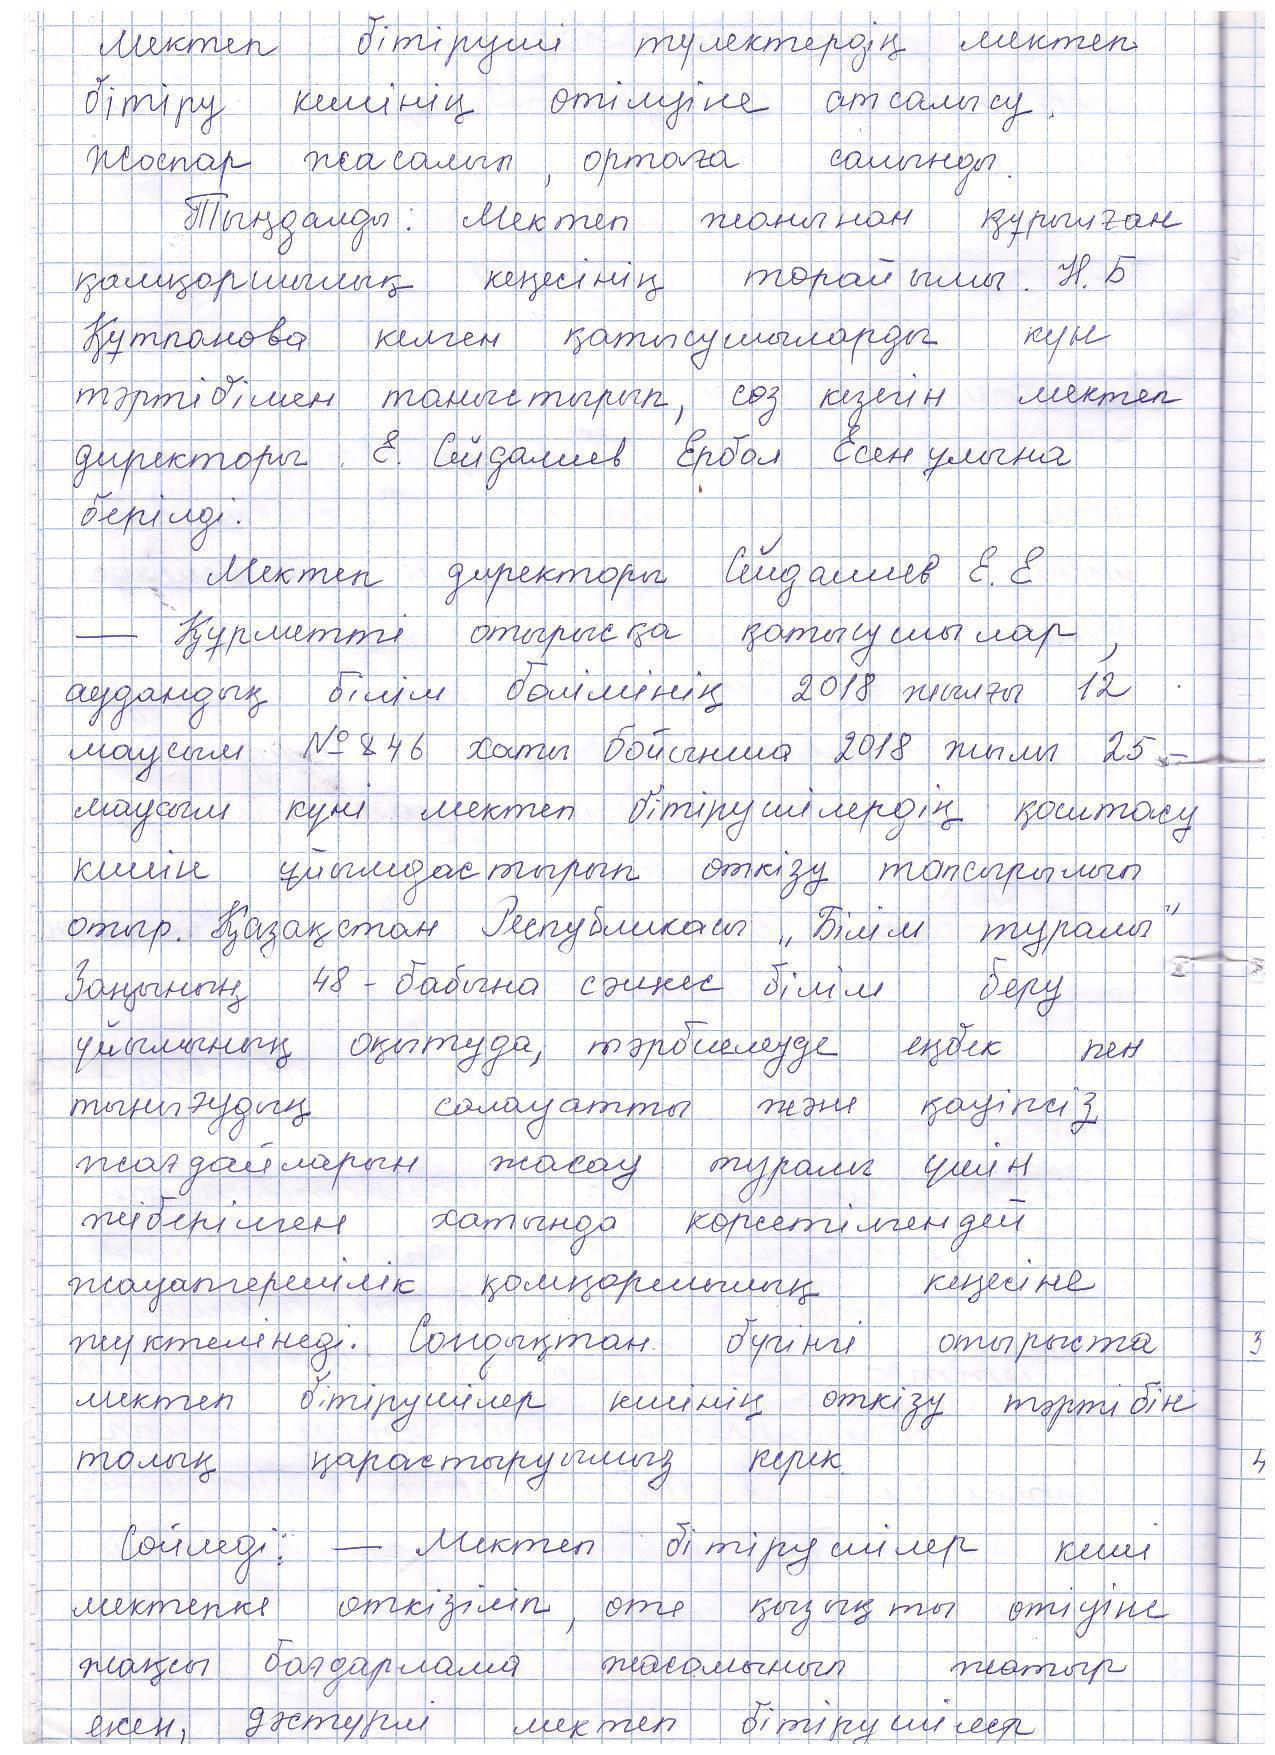 Мектеп бітіруші түлектердің мектеп
бітіру кешінің өтілуіне атсалысу.
Жоспар жасалып, ортаға салынды.
Тыңдалды: Мектеп жанынан құрылған
қамқоршылық кеңесінің төрайымы. Н.Б
Құтпанова келген қатысушыларды күн
тәртібімен таныстырып, сөз кезегін мектеп
директоры Е. Сейдалиев Ербол Есенұлына
берілді.
Мектеп директоры Сейдалиев Е.Е
— Құрметті отырысқа қатысушылар,
аудандық білім бөлімінің 2018 жылғы 12
маусым №846 хаты бойынша 2018 жылы 25-
маусым күні мектеп бітірушілердің қоштасу
кешін ұйымдастырып өткізу тапсырылып
отыр. Қазақстан Республикасы „Білім туралы"
Заңының 48-бабына сәйкес білім беру
ұйымының оқытуда, тәрбиелеуде еңбек пен
тынығудың салауатты және қауіпсіз
жағдайларын жасау туралы үшін
жіберілген хатында көрсетілгендей
жауапгершілік қамқоршылық кеңесіне
жүктелінеді. Сондықтан бүгінгі отырыста
мектеп бітірушілер кешінің өткізу тәртібін
толық қарастыруымыз керек.
Сөйледі: — Мектеп бітірушілер кеші
мектепке өткізіліп, өте қызықты өтуіне
жақсы бағдарлама жасалынып жатыр
екен, дәстүрлі мектеп бітірушілер
3
4